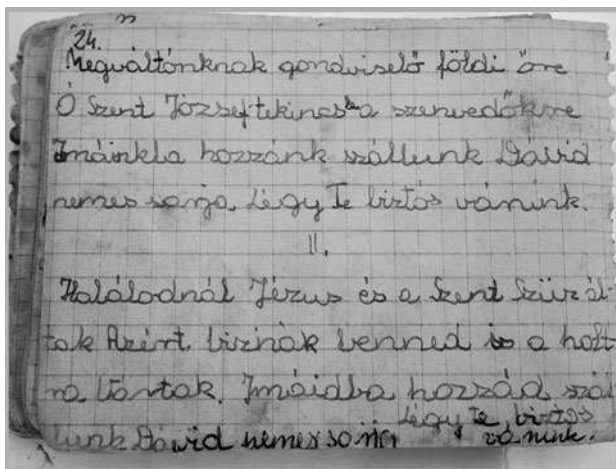 24.
Megváltónknak gondviselő földi őre
Ó Szent József tekincs a szenvedőkre
Imáinkba hozzánk szállunk Dávid
nemes sarja. Légy Te biztos várunk.
II.
Halálodnál Jézus és a Szent Szűz ál-
tak Azért biznak benned is a hall-
na Imáidba hozzád szál
lunk Dávid nemes sarja
Légy Te biztos
várunk.